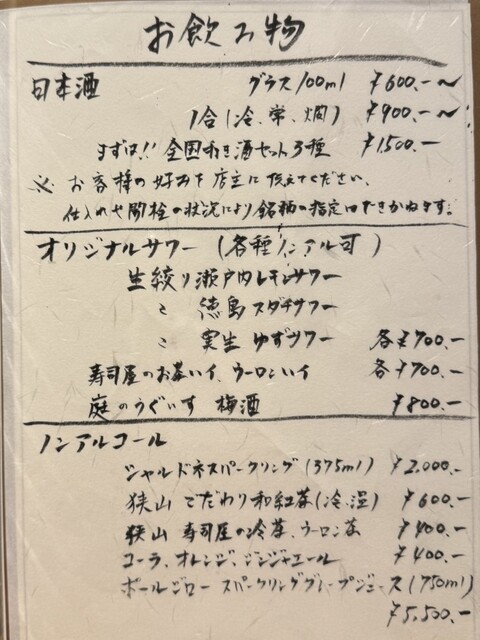 お飲み物
日本酒 グラス100ml ¥600.-〜
1合(冷、常、燗) ¥900.-〜
まずは!! 全国利き酒セット3種 ¥1,500.-
※ お客様の好みを店主に伝えてください。
仕入れや開栓の状況により銘柄の指定はできかねます。
オリジナルサワー(各種ノンアル可)
生絞り瀬戸内レモンサワー
〃 徳島スダチサワー
〃 実生ゆずサワー 各¥700.-
寿司屋のお茶ハイ、ウーロンハイ 各¥700.-
庭のうぐいす 梅酒 ¥800.-
ノンアルコール
シャルドネスパークリング(375ml) ¥2,000.-
狭山 こだわり和紅茶(冷、温) ¥600.-
狭山 寿司屋の冷茶、ウーロン茶 ¥400.-
コーラ、オレンジ、ジンジャエール ¥400.-
ポールジロー スパークリンググレープジュース(750ml)
¥5,500.-